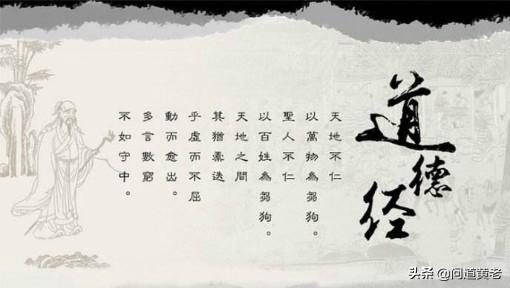 道德经
天地不仁
以萬物為芻狗。
聖人不仁
以百姓為芻狗。
天地之間
其猶橐
乎虛而不屈
動而愈出。
多言數窮
不如守中。
头条 @问道黄老